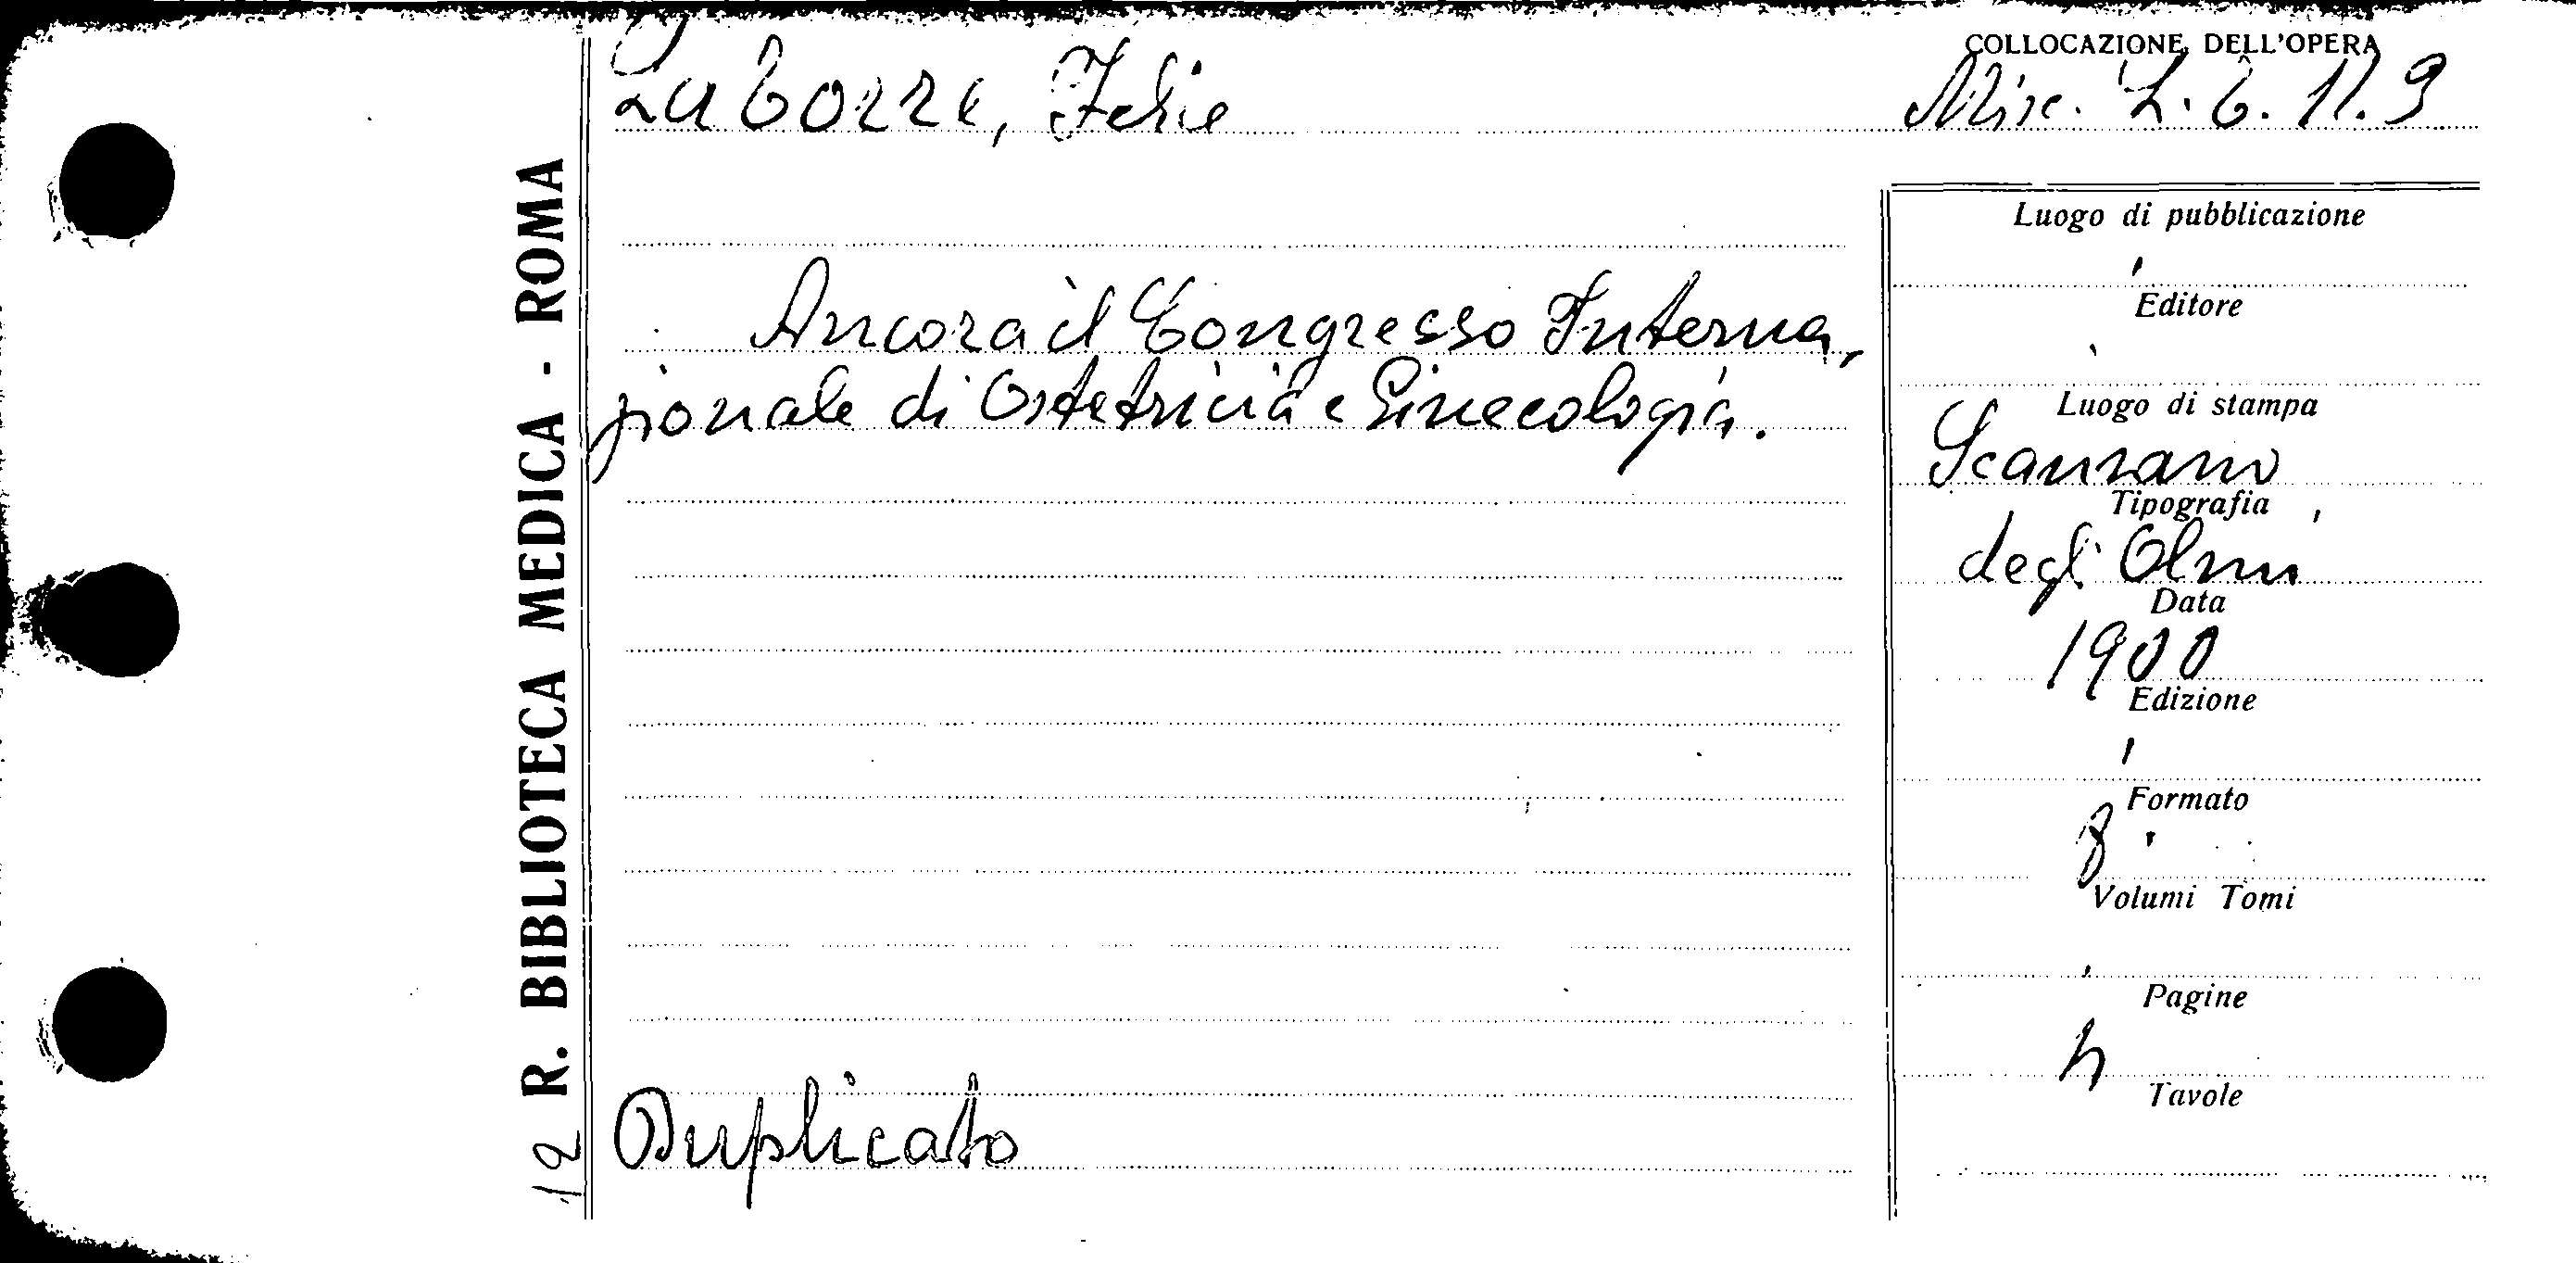 COLLOCAZIONE DELL'OPERA
La Torre, Felice
Misc. L. 6. 11. 9
R. BIBLIOTECA MEDICA - ROMA
12
Ancora il Congresso Interna,
zionale di Ostetricia e Ginecologia.
Duplicato
Luogo di pubblicazione
Editore
Luogo di stampa
Scansano
Tipografia
degli Olmi
Data
1900
Edizione
Formato
8
Volumi Tomi
Pagine
Tavole